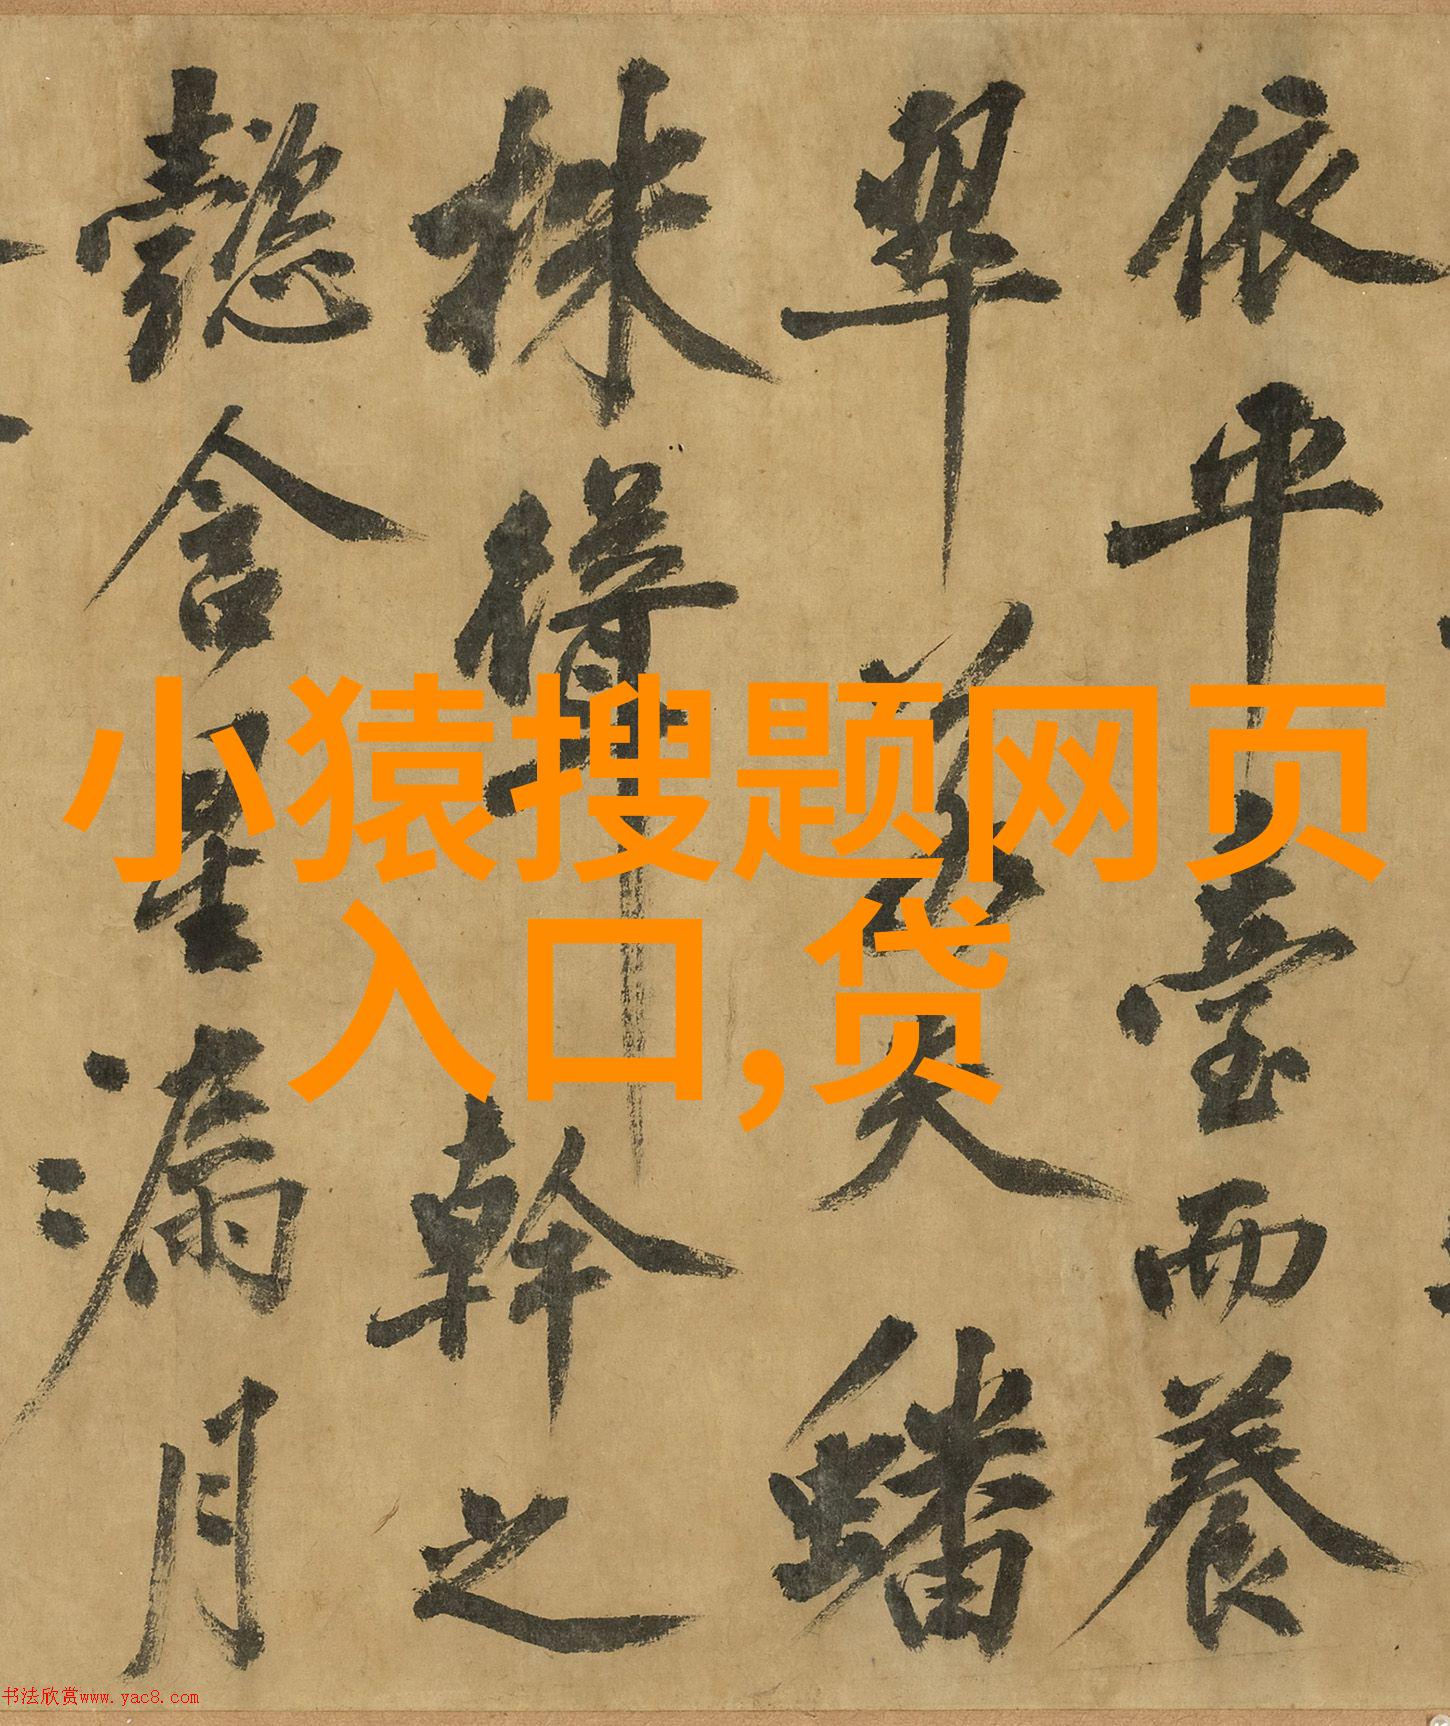 依平臺而養
翠夫蟠
株得幹之
懿含星漏月
小猿搜题网页
入口,贷
书法欣赏www.yac8.com